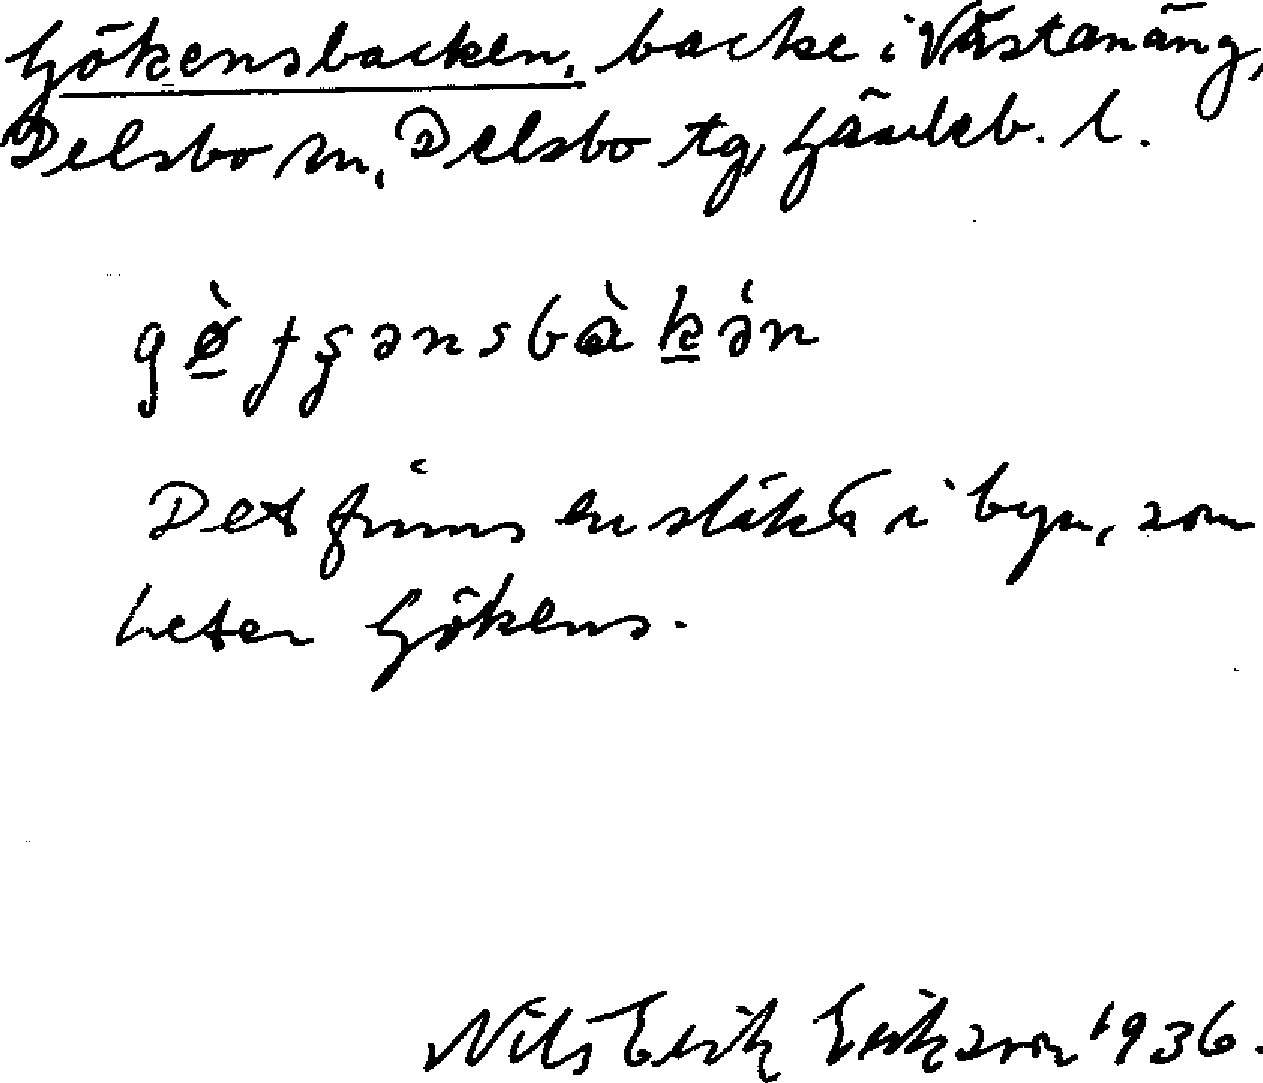 Gökensbacken, backe i Västanäng,
Delsbo sn, Delsbo tg, Gävleb. l.
Det finns en släkt i byn, som
heter Gökens.
Nils Erik Erikson 1936.